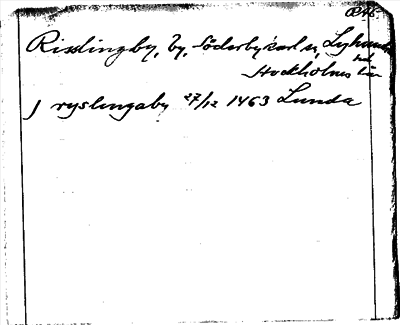 Risslingby, by, Söderbykarl sn, Lyhundra
hd
Stockholms län
J ryslingaby 27/12 1463 Lunda